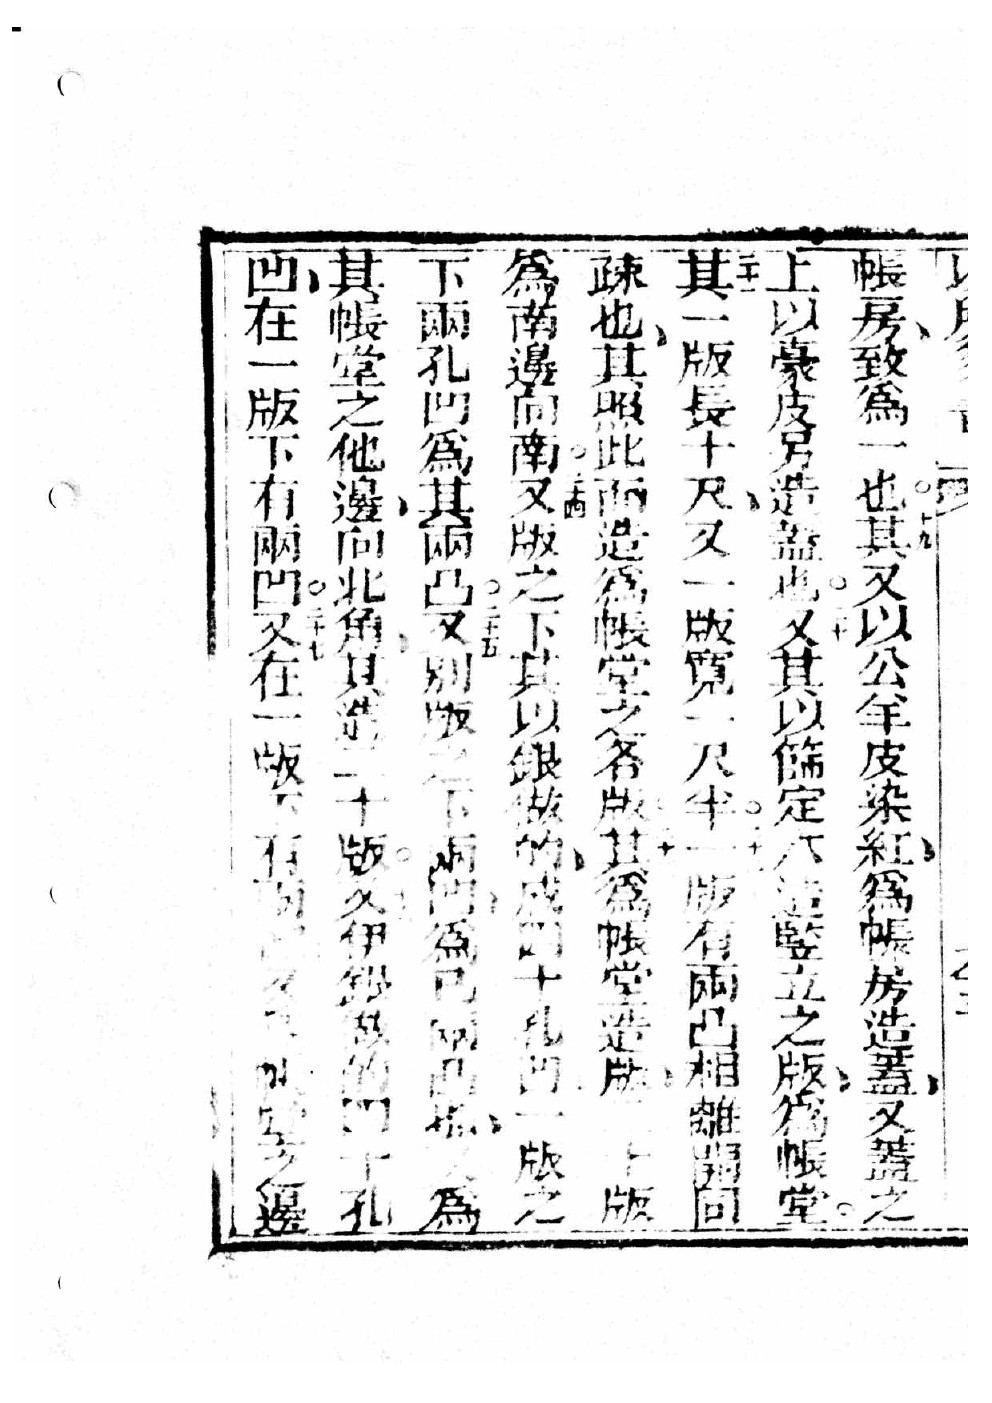 帳房、致爲一也。十九其又以公羊皮染紅、爲帳房造蓋、又蓋之
上以豪皮另造蓋也。二十又其以篩定木造竪立之版、爲帳堂。
二十一其一版長十尺、又一版寬一尺半。二十一版有兩凸相離開向
疎也、其照此而造爲帳堂之各版。二十其爲帳堂造版、二十版
爲南邊向南。二十四又版之下其以銀做的、成四十孔凹、一版之
下兩孔凹爲其兩凸。二十五又別版之下兩凹、爲己兩凸
其帳堂之他邊、向北角、其造二十版。又伊銀做的四十孔
凹、在一版下有兩凹。二十七又在一版下有兩 之邊